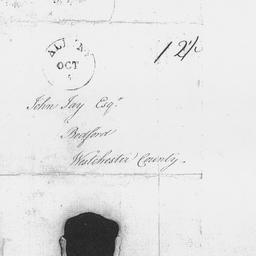 ALBANY
OCT
12½
John Jay Esqr
Bedford
Westchester County.